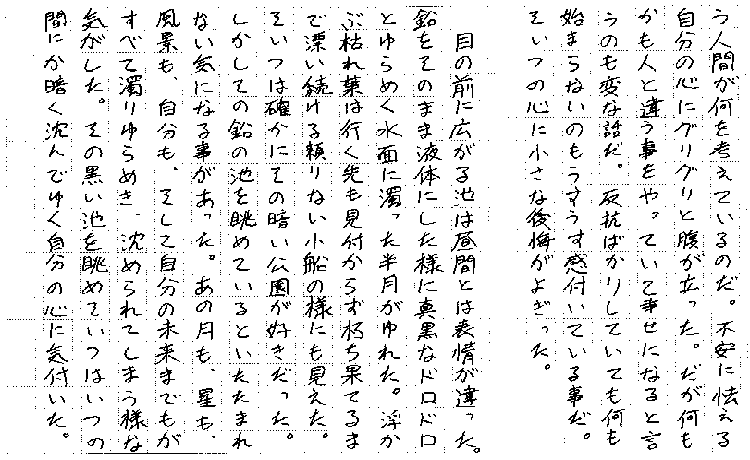 う人間が何を考えているのだ。不安に怯える
自分の心にグリグリと腹が立った。だが何も
かも人と違う事をやっていて幸せになると言
うのも変な話だ。反抗ばかりしていても何も
始まらないのもうすうす感付いている事だ。
そいつの心に小さな後悔がよぎった。
目の前に広がる池は昼間とは表情が違った。
鉛をそのまま液体にした様に真黒なドロドロ
とゆらめく水面に濁った半月がゆれた。浮か
ぶ枯れ葉は行く先も見付からず朽ち果てるま
で漂い続ける頼りない小船の様にも見えた。
そいつは確かにその暗い公園が好きだった。
しかしその鉛の池を眺めているといたたまれ
ない気になる事があった。あの月も、星も、
風景も、自分も、そして自分の未来までもが
すべて濁りゆらめき、沈められてしまう様な
気がした。その黒い池を眺めていつはいつの
間にか暗く沈んでゆく自分の心に気付いた。